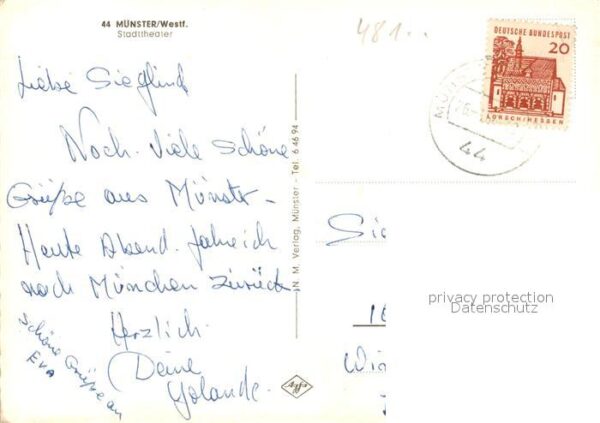 44 MÜNSTER/Westf.
Stadttheater
481..
DEUTSCHE BUNDESPOST
20
LORSCH/HESSEN
MÜN
44
Liebe Sieglind
Noch viele schöne
Grüße aus Münster-
Heute Abend fahre ich
nach München zurück
Herzlich
Deine
Yolande.
schöne Grüße an
EVA
N. M. Verlag, Münster - Tel. 6 46 94
Agfa
Sie
privacy protection
Datenschutz